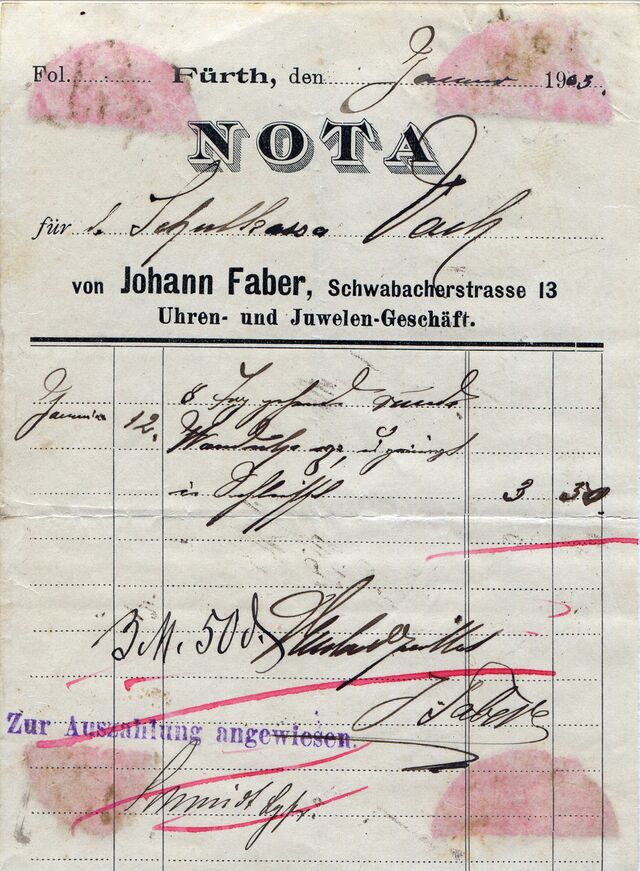 Fol. Fürth, den Januar 1903.
NOTA
für d. Schulkassa Vach
von Johann Faber, Schwabacherstrasse 13
Uhren- und Juwelen-Geschäft.
Januar 12. 8 Tag gehende runde
Wanduhr
3 50.
3 M. 50 d.
J. Faber
Zur Auszahlung angewiesen.
Schmidt